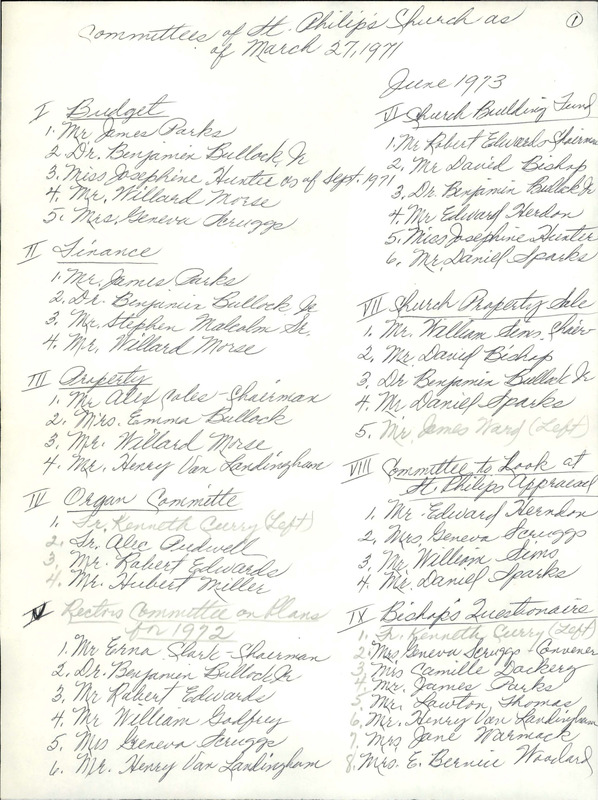 Committees of St. Philip's Church as
of March 27, 1971
1
I Budget
1. Mr James Parks
2. Dr. Benjamin Bullock, Jr
3. Miss Josephine Hunter as of Sept. 1971
4. Mr. Willard Morse
5. Mrs. Geneva Scruggs
II Finance
1. Mr. James Parks
2. Dr. Benjamin Bullock Jr
3. Mr. Stephen Malcolm Sr.
4. Mr. Willard Morse
III Property
1. Mr Alex Coles - Chairman
2. Mrs. Emma Bullock
3. Mr. Willard Morse
4. Mr. Henry Van Landingham
IV Organ Committe
1. Fr. Kenneth Curry (Left)
2. Fr. Alec Pudwell
3. Mr. Robert Edwards
4. Mr. Hubert Miller
V Rectors Committee on Plans
for 1972
1. Mr Erna Clark - Chairman
2. Dr. Benjamin Bullock, Jr
3. Mr Robert Edwards
4. Mr William Godfrey
5. Mrs Geneva Scruggs
6. Mr. Henry Van Landingham
June 1973
VI Church Building Fund
1. Mr Robert Edwards Chairman
2. Mr David Bishop
3. Dr. Benjamin Bullock Jr
4. Mr Edward Herdon
5. Miss Josephine Hunter
6. Mr. Daniel Sparks
VII Church Property Sale
1. Mr. William Sims. Chair
2. Mr. David Bishop
3. Dr Benjamin Bullock Jr
4. Mr. Daniel Sparks
5. Mr. James Ward (Left)
VIII Committee to Look at
St Philips Appraisal
1. Mr. Edward Herndon
2. Mrs Geneva Scruggs
3. Mr William Sims
4. Mr. Daniel Sparks
IX Bishop's Questionaire
1. Fr. Kenneth Curry (Left)
2. Mrs Geneva Scruggs - Convener
3. Mrs Camille Dockery
4. Mr. James Parks
5. Mr. Lawton Thomas
6. Mr. Henry Van Landingham
7. Mrs Jane Warmack
8. Mrs. E. Bernice Woodard